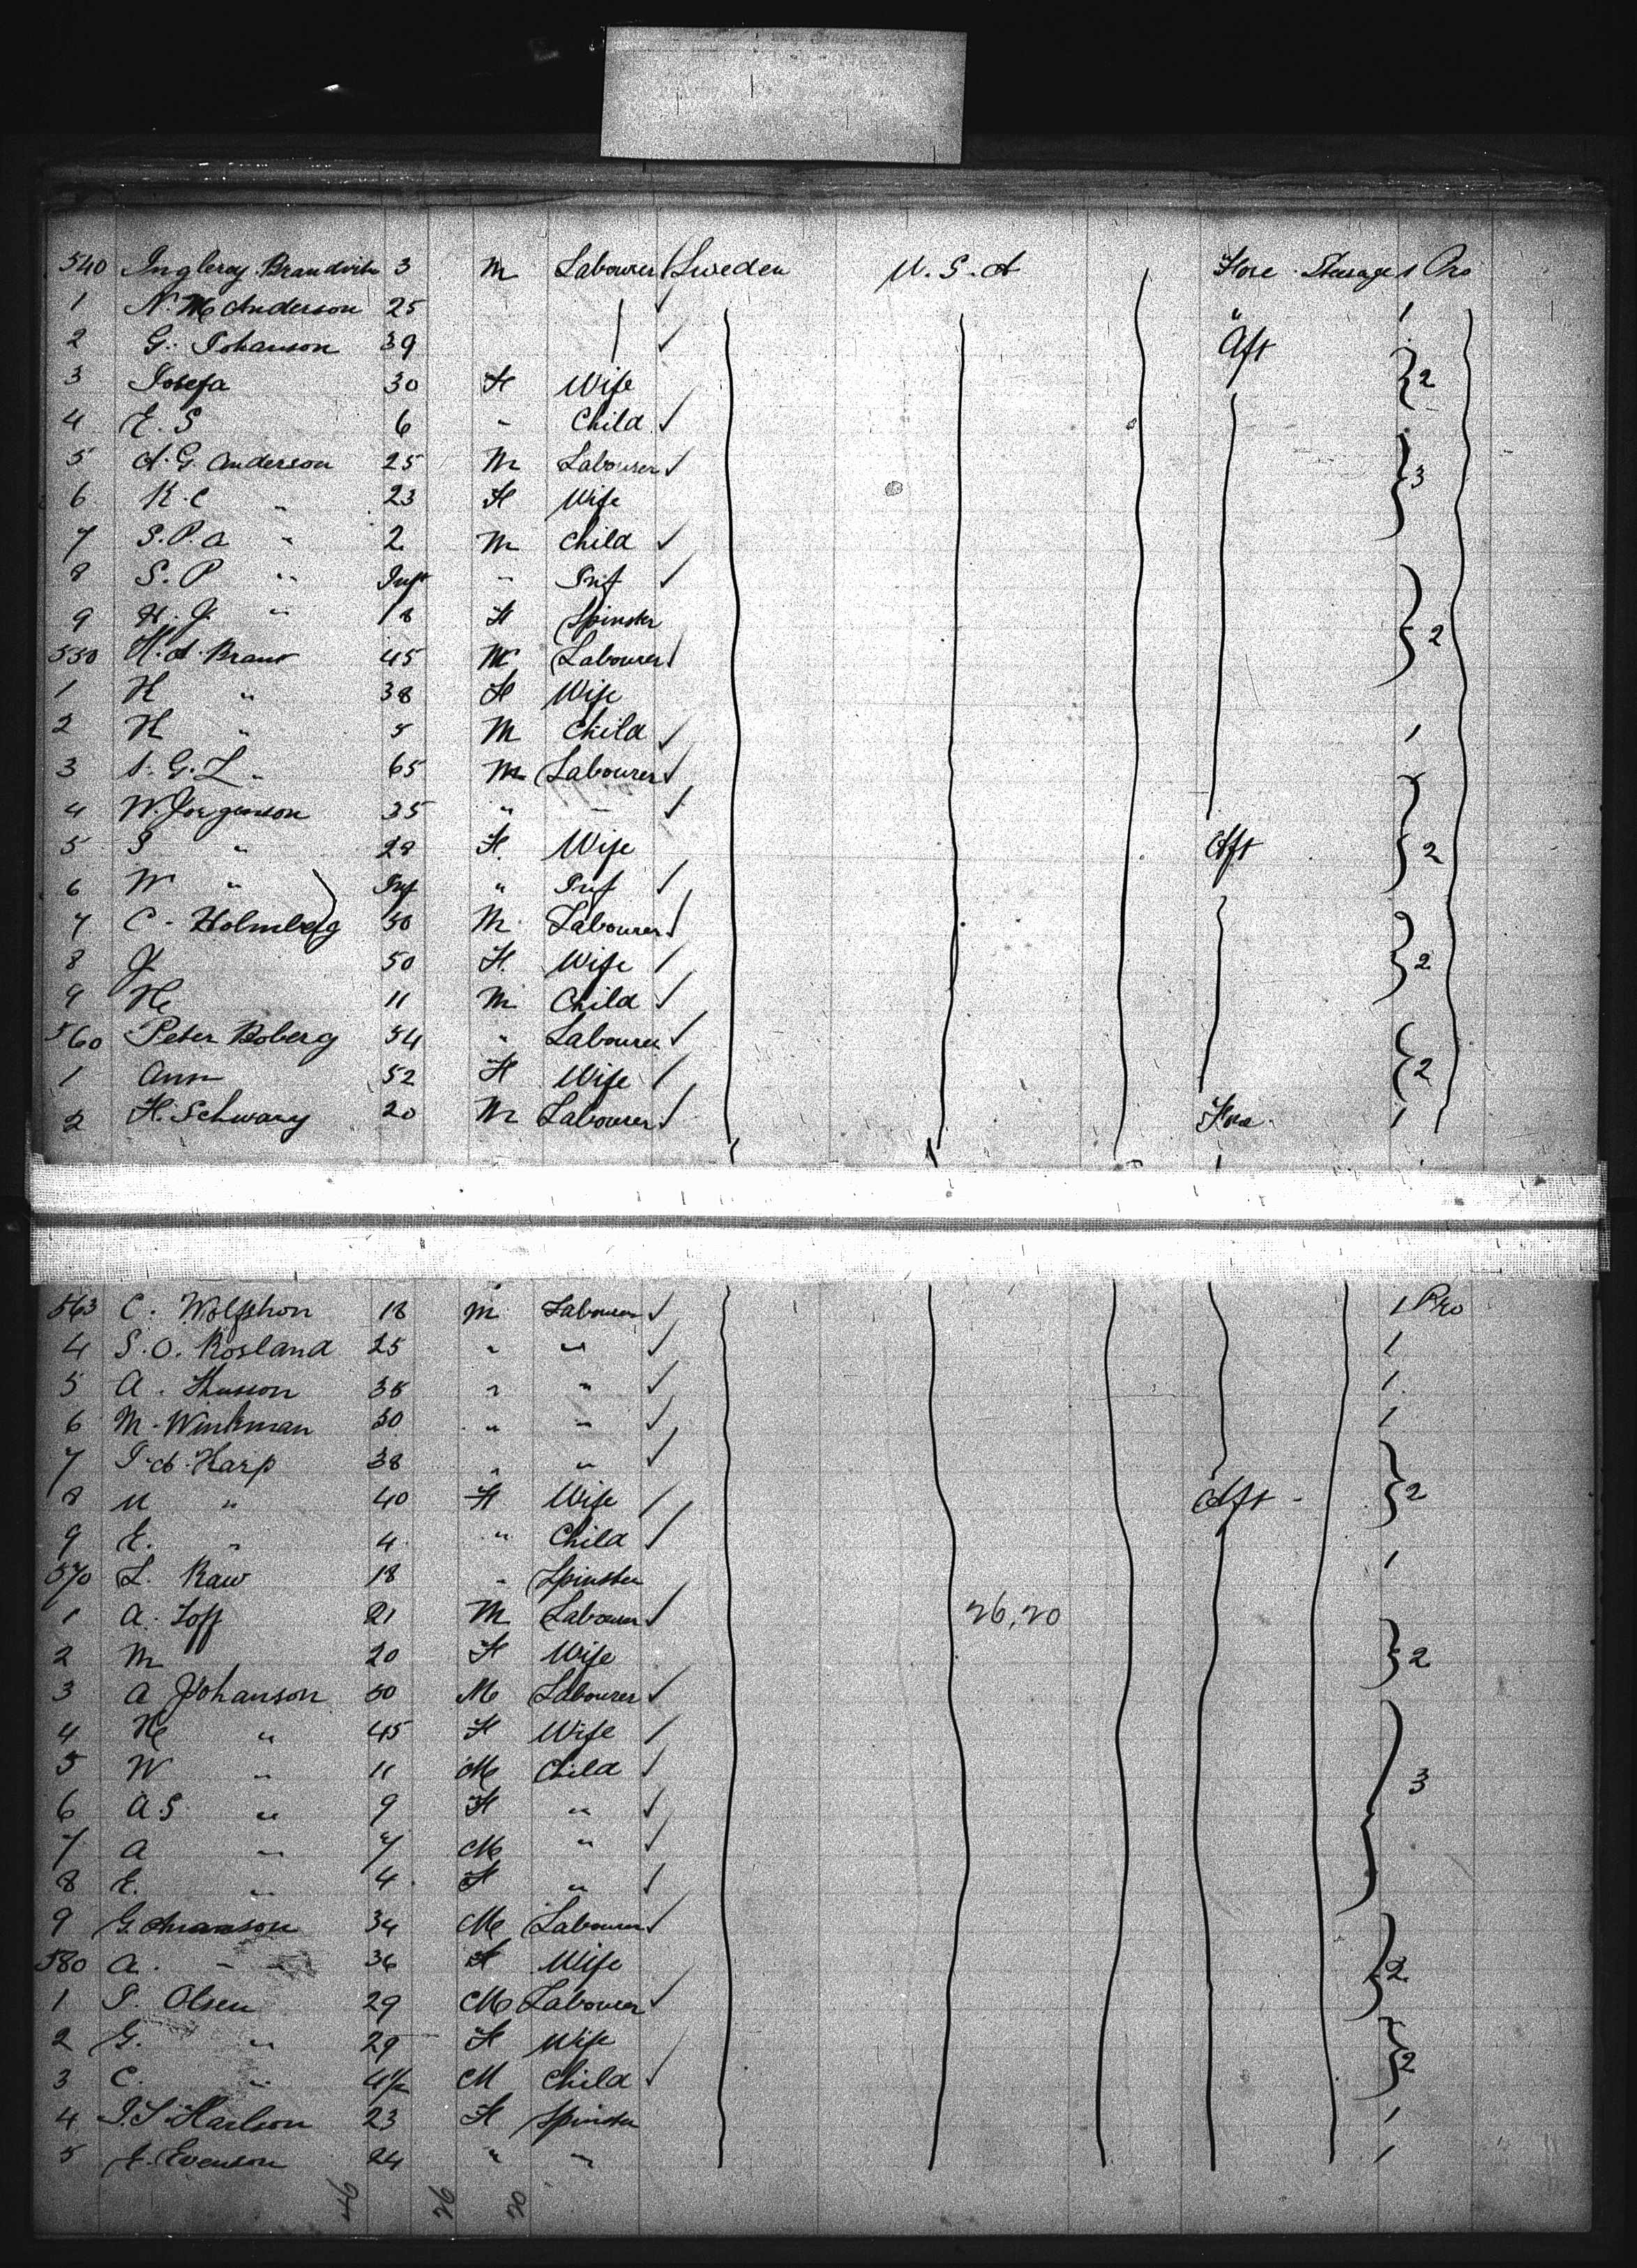 540 Ingleroy Brandvik 3 M Labourer Sweden U.S.A Fore Steerage 1 Pro
1 N. M Anderson 25 " 1
2 G. Johanson 39 Aft
3 Josefa 30 F Wife 2
4 E. S 6 " Child
5 A. G. Anderson 25 M Labourer 3
6 K. C " 23 F Wife
7 S. P. a " 2 M Child
8 S. P " Inft " Inf
9 H. J. " 18 F Spinster
550 H. A. Brant 45 M Labourer 2
1 H " 38 F Wife
2 H " 5 M Child 1
3 A. G. L " 65 M Labourer
4 W. Jorgenson 35 " "
5 S " 28 F. Wife Aft 2
6 W " Inf " Inf
7 C. Holmberg 50 M Labourer
8 J. 50 F. Wife 2
9 H 11 M Child
560 Peter Boberg 54 " Labourer
1 Ann 52 F Wife 2
2 H. Schwarz 20 M Labourer Fore 1
563 C. Wolfshon 18 M Labourer 1 Pro
4 S. O. Rosland 25 " " 1
5 A. Husson 38 " " 1
6 M. Winkman 30 " " 1
7 J. A. Harp 38 " "
8 M " 40 F Wife Aft 2
9 E. " 4 " Child
570 L. Raw 18 " Spinster 1
1 A. Loff 21 M Labourer 26,20
2 M 20 F Wife 2
3 A Johanson 50 M Labourer
4 H " 45 F Wife
5 W " 11 M Child 3
6 A S " 9 F "
7 A " 7 M "
8 E. " 4 F "
9 G. 34 M Labourer
580 A. " 36 F Wife 2
1 P. Olsen 29 M Labourer
2 G. " 29 F Wife
3 C. " 4½ M Child 2
4 J. S Harlson 23 F Spinster 1
5 E. Evenson 24 " " 1
46 26 20